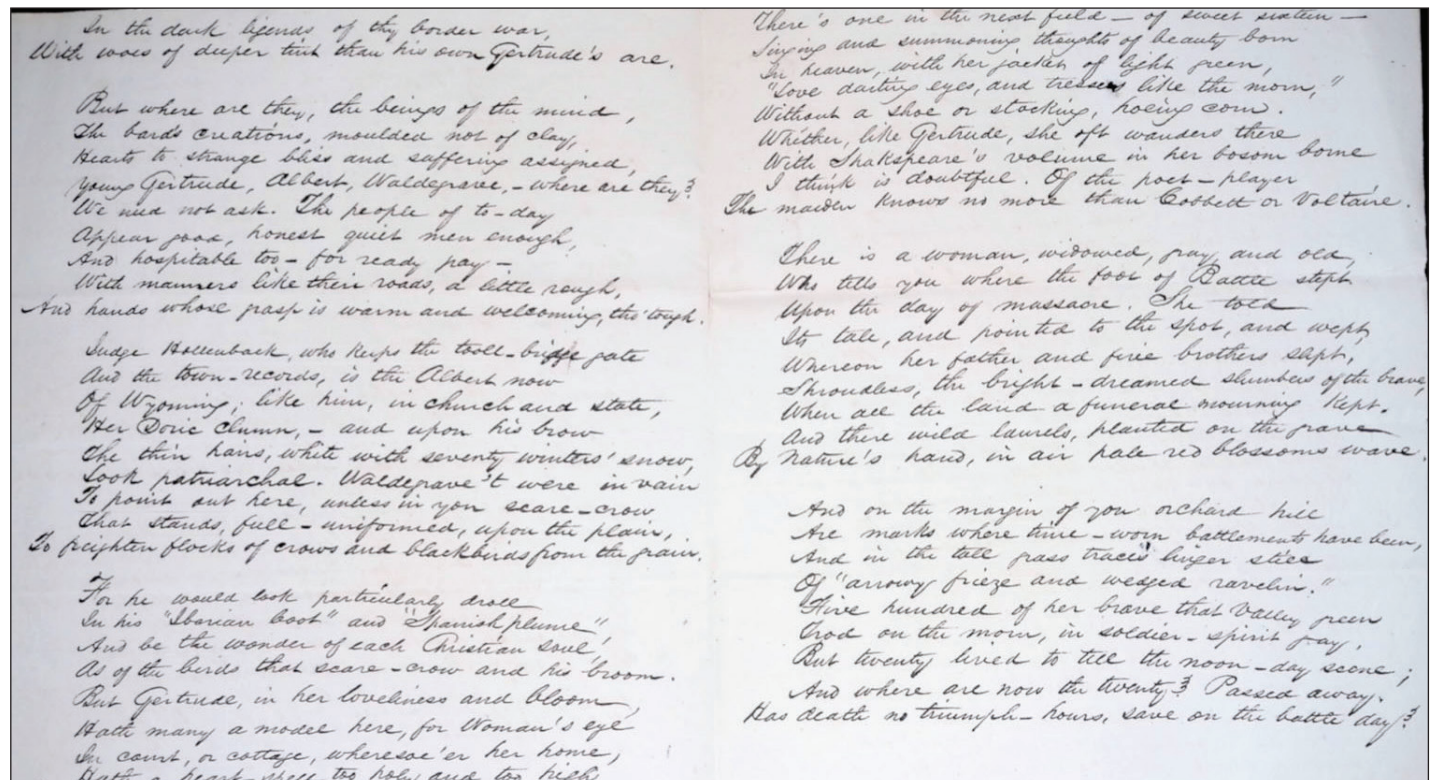 In the dark legends of thy border war,
With woes of deeper tint than his own Gertrude's are.
But where are they, the beings of the mind,
The bard's creations, moulded not of clay,
Hearts to strange bliss and suffering assigned,
Young Gertrude, Albert, Waldegrave, - where are they?
We need not ask. The people of to-day
Appear good, honest quiet men enough,
And hospitable too - for ready pay -
With manners like their roads, a little rough,
And hands whose grasp is warm and welcoming, tho' tough.
Judge Hollenback, who keeps the toll-bridge gate
And the town-records, is the Albert now
Of Wyoming; like him, in church and state,
Her Doric clumn, - and upon his brow
The thin hairs, white with seventy winters' snow,
Look patriarchal. Waldegrave 't were in vain
To point out here, unless in yon scare-crow
That stands, full-uniformed, upon the plain,
To frighten flocks of crows and blackbirds from the grain.
For he would look particularly droll
In his "Iberian boot" and "Spanish plume",
And be the wonder of each Christian soul,
As of the birds that scare-crow and his broom.
But Gertrude, in her loveliness and bloom,
Hath many a model here, for Woman's eye
In court, or cottage, wheresoe'er her home,
Hath a heart-spell too holy and too high
There's one in the next field - of sweet sixteen -
Singing and summoning thoughts of beauty born
In heaven, with her jacket of light green,
"Love darting eyes, and tresses like the morn,"
Without a shoe or stocking, hoeing corn.
Whether, like Gertrude, she oft wanders there
With Shakspeare's volume in her bosom borne
I think is doubtful. Of the poet-player
The maiden knows no more than Cobbett or Voltaire.
There is a woman, widowed, gray, and old,
Who tells you where the foot of Battle stept
Upon the day of massacre. She told
Its tale, and pointed to the spot, and wept,
Whereon her father and five brothers slept,
Shroudless, the bright-dreamed slumbers of the brave,
When all the land a funeral mourning kept.
And there wild laurels, planted on the grave
By Nature's hand, in air pale red blossoms wave.
And on the margin of yon orchard hill
Are marks where time-worn battlements have been,
And in the tall grass traces linger still
Of "arrowy frieze and wedged ravelin."
Five hundred of her brave that Valley green
Trod on the morn, in soldier-spirit gay,
But twenty lived to tell the noon-day scene;
And where are now the twenty? Passed away.
Has death no triumph-hours, save on the battle day?